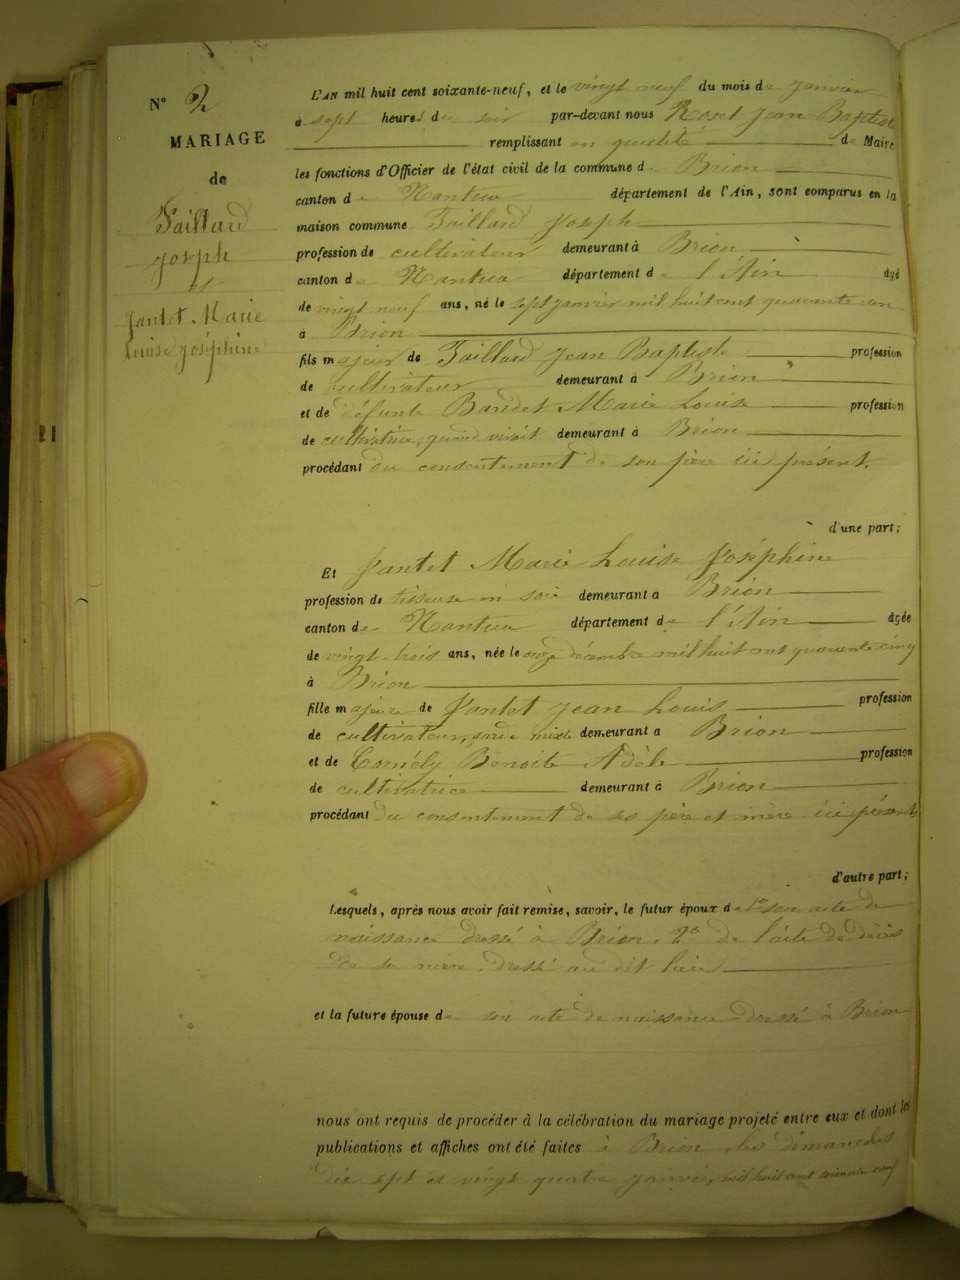 N° 2
MARIAGE
de
Jaillard
Joseph
et
Jantet Marie
Louise Joséphine
L'AN mil huit cent soixante-neuf, et le vingt neuf du mois de Janvier
à sept heures du soir par-devant nous Rosset Jean Baptiste
remplissant en qualité de Maire
les fonctions d'Officier de l'état civil de la commune d Brion
canton de Nantua département de l'Ain, sont comparus en la
maison commune Jaillard Joseph
profession de cultivateur demeurant à Brion
canton de Nantua département d l'Ain âgé
de vingt neuf ans, né le sept janvier mil huit cent quarante un
à Brion
fils majeur de Jaillard Jean Baptiste profession
de cultivateur demeurant à Brion
et de défunte Marie Louise profession
de cultivatrice, quand vivait demeurant à Brion
procédant du consentement de son père ici présent.
d'une part;
Et Jantet Marie Louise Joséphine
profession de tisseuse en soie demeurant à Brion
canton de Nantua département de l'Ain âgée
de vingt-trois ans, née le onze décembre mil huit cent quarante cinq
à Brion
fille majeure de Jantet Jean Louis profession
de cultivateur, garde mixte demeurant à Brion
et de Benoite Adèle profession
de cultivatrice demeurant à Brion
procédant du consentement de ses père et mère ici présents
d'autre part;
Lesquels, après nous avoir fait remise, savoir, le futur époux de 1° son acte de
naissance dressé à Brion, 2° de l'acte de décès
de sa mère, dressé au dit lieu
et la future épouse de son acte de naissance dressé à Brion
nous ont requis de procéder à la célébration du mariage projeté entre eux et dont les
publications et affiches ont été faites à Brion, les dimanches
dix sept et vingt quatre janvier, mil huit cent soixante neuf